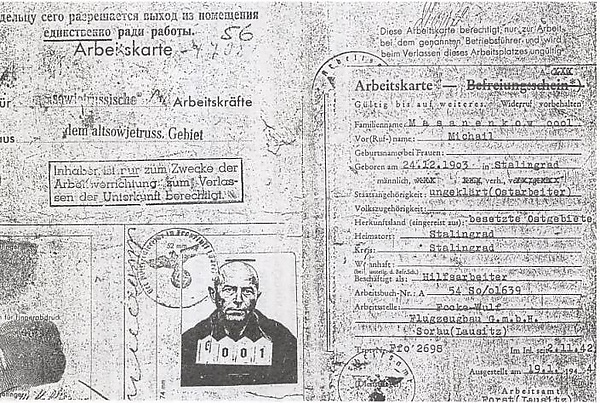 дельцу сего разрешается выход из помещения
единственно ради работы. 56
Arbeitskarte
für sowjetrussische Arbeitskräfte
aus dem altsowjetruss. Gebiet
Inhaber ist nur zum Zwecke der
Arbeitverrichtung zum Verlas-
sen der Unterkunft berechtigt.
52 mm
6001
74 mm
für Fingerabdruck
Diese Arbeitskarte berechtigt nur zur Arbeit
bei dem genannten Betriebsführer und wird
beim Verlassen dieses Arbeitsplatzes ungültig
Arbeitskarte — Befreiungsschein*)
Gültig bis auf weiteres. Widerruf vorbehalten
Familienname: Masanenkow
Vor(Ruf-)name: Michail
Geburtsname bei Frauen:
Geboren am 24.12.1903 in Stalingrad
männlich, verh.,
Staatsangehörigkeit: ungeklärt(Ostarbeiter)
Volkszugehörigkeit:
Herkunftsland (eingereist aus): besetzte Ostgebiete
Heimatort: Stalingrad
Kreis: Stalingrad
Wohnhaft:
Beschäftigt als: Hilfsarbeiter
Arbeitsbuch-Nr.: A 54 So/o1639
Arbeitsstelle: Focke-Wulf
Flugzeugbau G.m.b.H.
Sorau(Lausitz)
Pfo 2698 Im Inl. seit 2.11.42
Ausgestellt am 19.1. 194
Arbeitsamt
Forst(Lausitz)